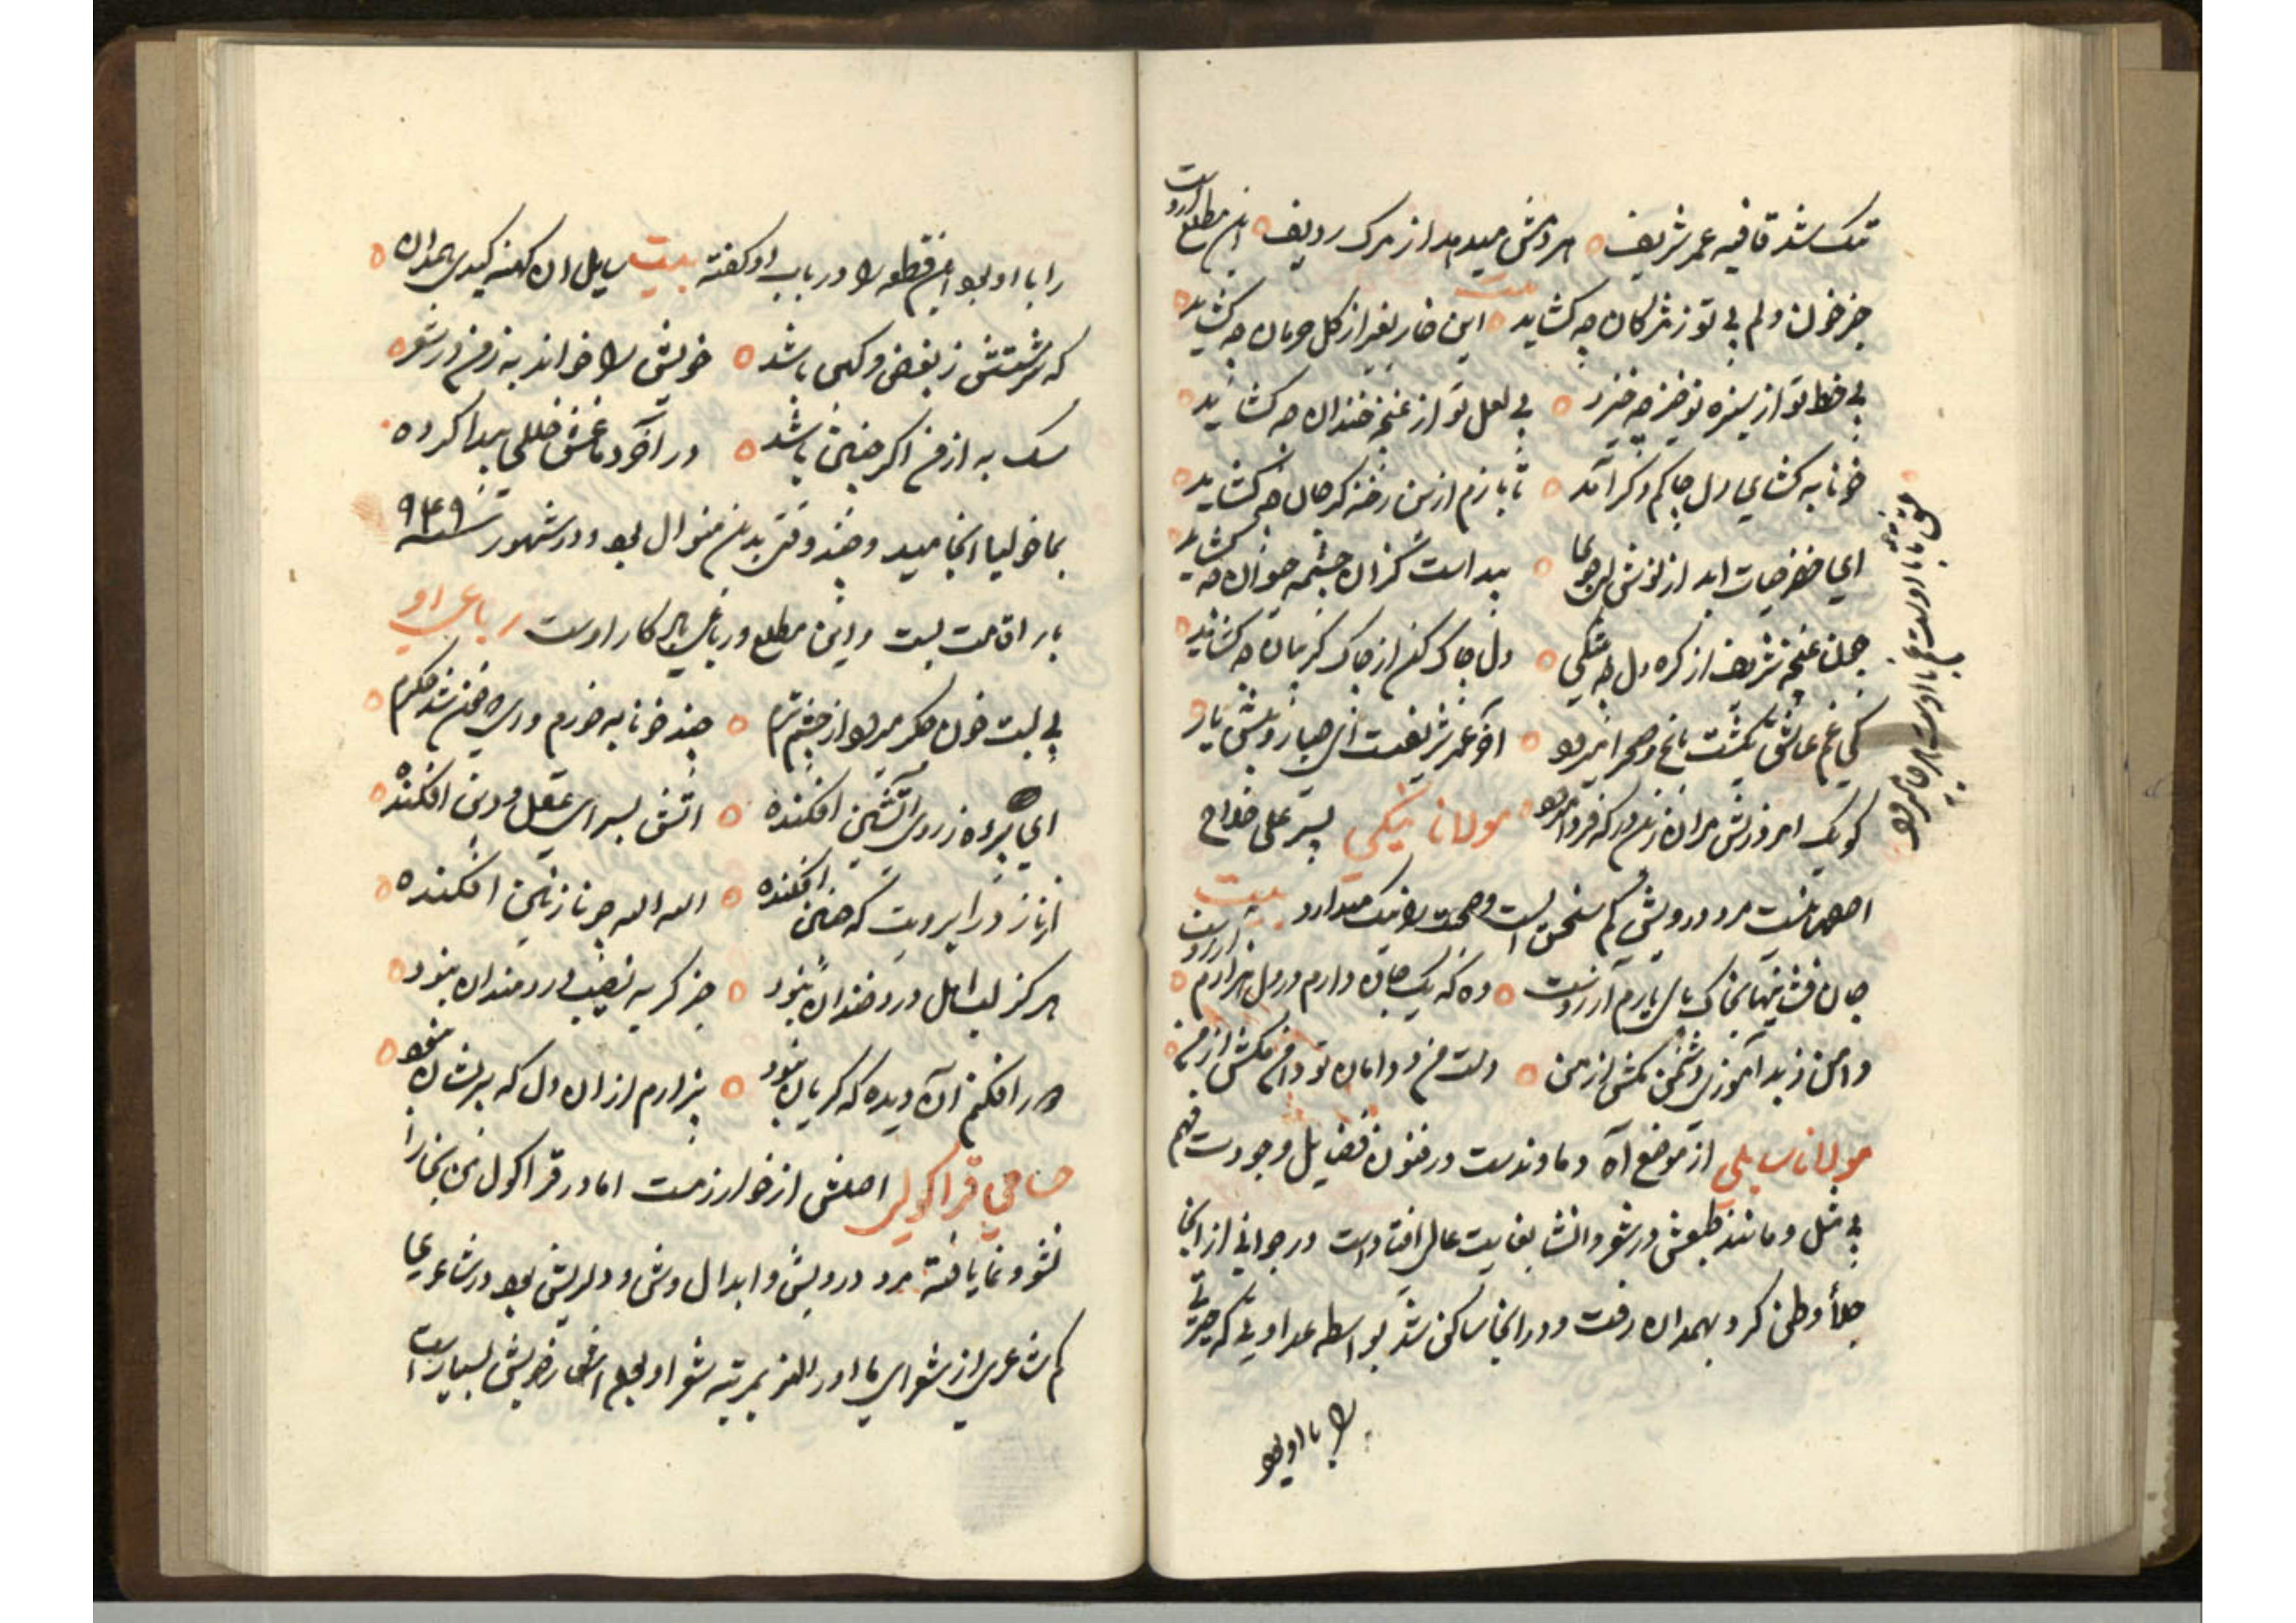 تنک شد قافیه عمر شریف ٥ هر دمش میدمد از مرک ردیف ٥ این مطلع اوست
بیت
جز خون دلم بی تو ز مژکان چه کشاید ٥ این خار بغیر از کل حرمان چه کشاید ٥
بی خط تو از سبزه نوخیز چه خیزد ٥ بی لعل تو از غنچه خندان چه کشاید ٥
خونابه کشای دل چاکم دکر آمد ٥ تا بازم ازین رخنه کر جان چه کشاید ٥
ای خضر حیات ابد از نوش لبی جوی ٥ پیداست کز ان چشمه حیوان چه کشاید
چون غنچه شریف از کره دل چه شکیبی ٥ دل چاک کن از چاک کریبان چه کشاید ٥
کی غم عاشق بکشت باغ و صحرا میرود ٥ آخر عمر شریفست ای صبا زودش بیار
کو یک امروزش مران زین در که فردا میرود ٥ مولانا نیکی پسر علی حلاج
اصفهانیست مرد درویش کم سخن است و صحبت را نیک میدارد بیت
جان فشانیها بخاک پای یارم آرزوست ٥ وه که یک جان دارم و در دل هزارم آرزوست ٥
دامن ز بد آموزی دشمن مکش از من ٥ دست من و دامان تو دامن مکش از من ٥
مولانا سایلی از موضع آه دماوندست در فنون فضایل وجودت فهم
بی مثل و مانند طبعش در شعر و انشا بغایت عالی افتاده است در جوانی از انجا
جلاء وطن کرد و بهمدان رفت و در انجا ساکن شد بواسطه عداوتی که حیرتی
را با او بود
را با او بود این قطعه را در باب او کفته بیت سایل ان کهنه کیدی همدان ٥
که سرشتش ز بغض و کین باشد ٥ خویش را خواند به ز من در شعر ٥
سک به از من اکر چنین باشد ٥ در آخر دماغش خللی پیدا کرده
بماخولیا انجامید و چند وقتی بدین منوال بود و در شهور سنه ٩٤٩
بار اقامت بست و این مطلع و رباعی یادکار اوست رباعی او
بی لبت خون جکر میرود از چشم ترم ٥ چند خونابه خورم وای که خون شد جکرم ٥
ای پرده ز روی آتشین افکنده ٥ اتش بسرای عقل و دین افکنده ٥
از ناز در ابرویت که چین افکنده ٥ الله الله چه نازنین افکنده ٥
هرکز لب اهل درد خندان نبود ٥ جز کریه نصیب دردمندان نبود ٥
در افکنم آن دیده که کریان نبود ٥ بیزارم از ان دل که پریشان نبود ٥
حسامی قراکولی اصلش از خوارزمست اما در قراکول من بخارا
نشو و نما یافته مرد درویش و ابدال وش و دلریش بود در شاعری
کم شاعری از شعرای ماوراء النهر بمرتبه شعر او بود اشعار خوبش بسیار است